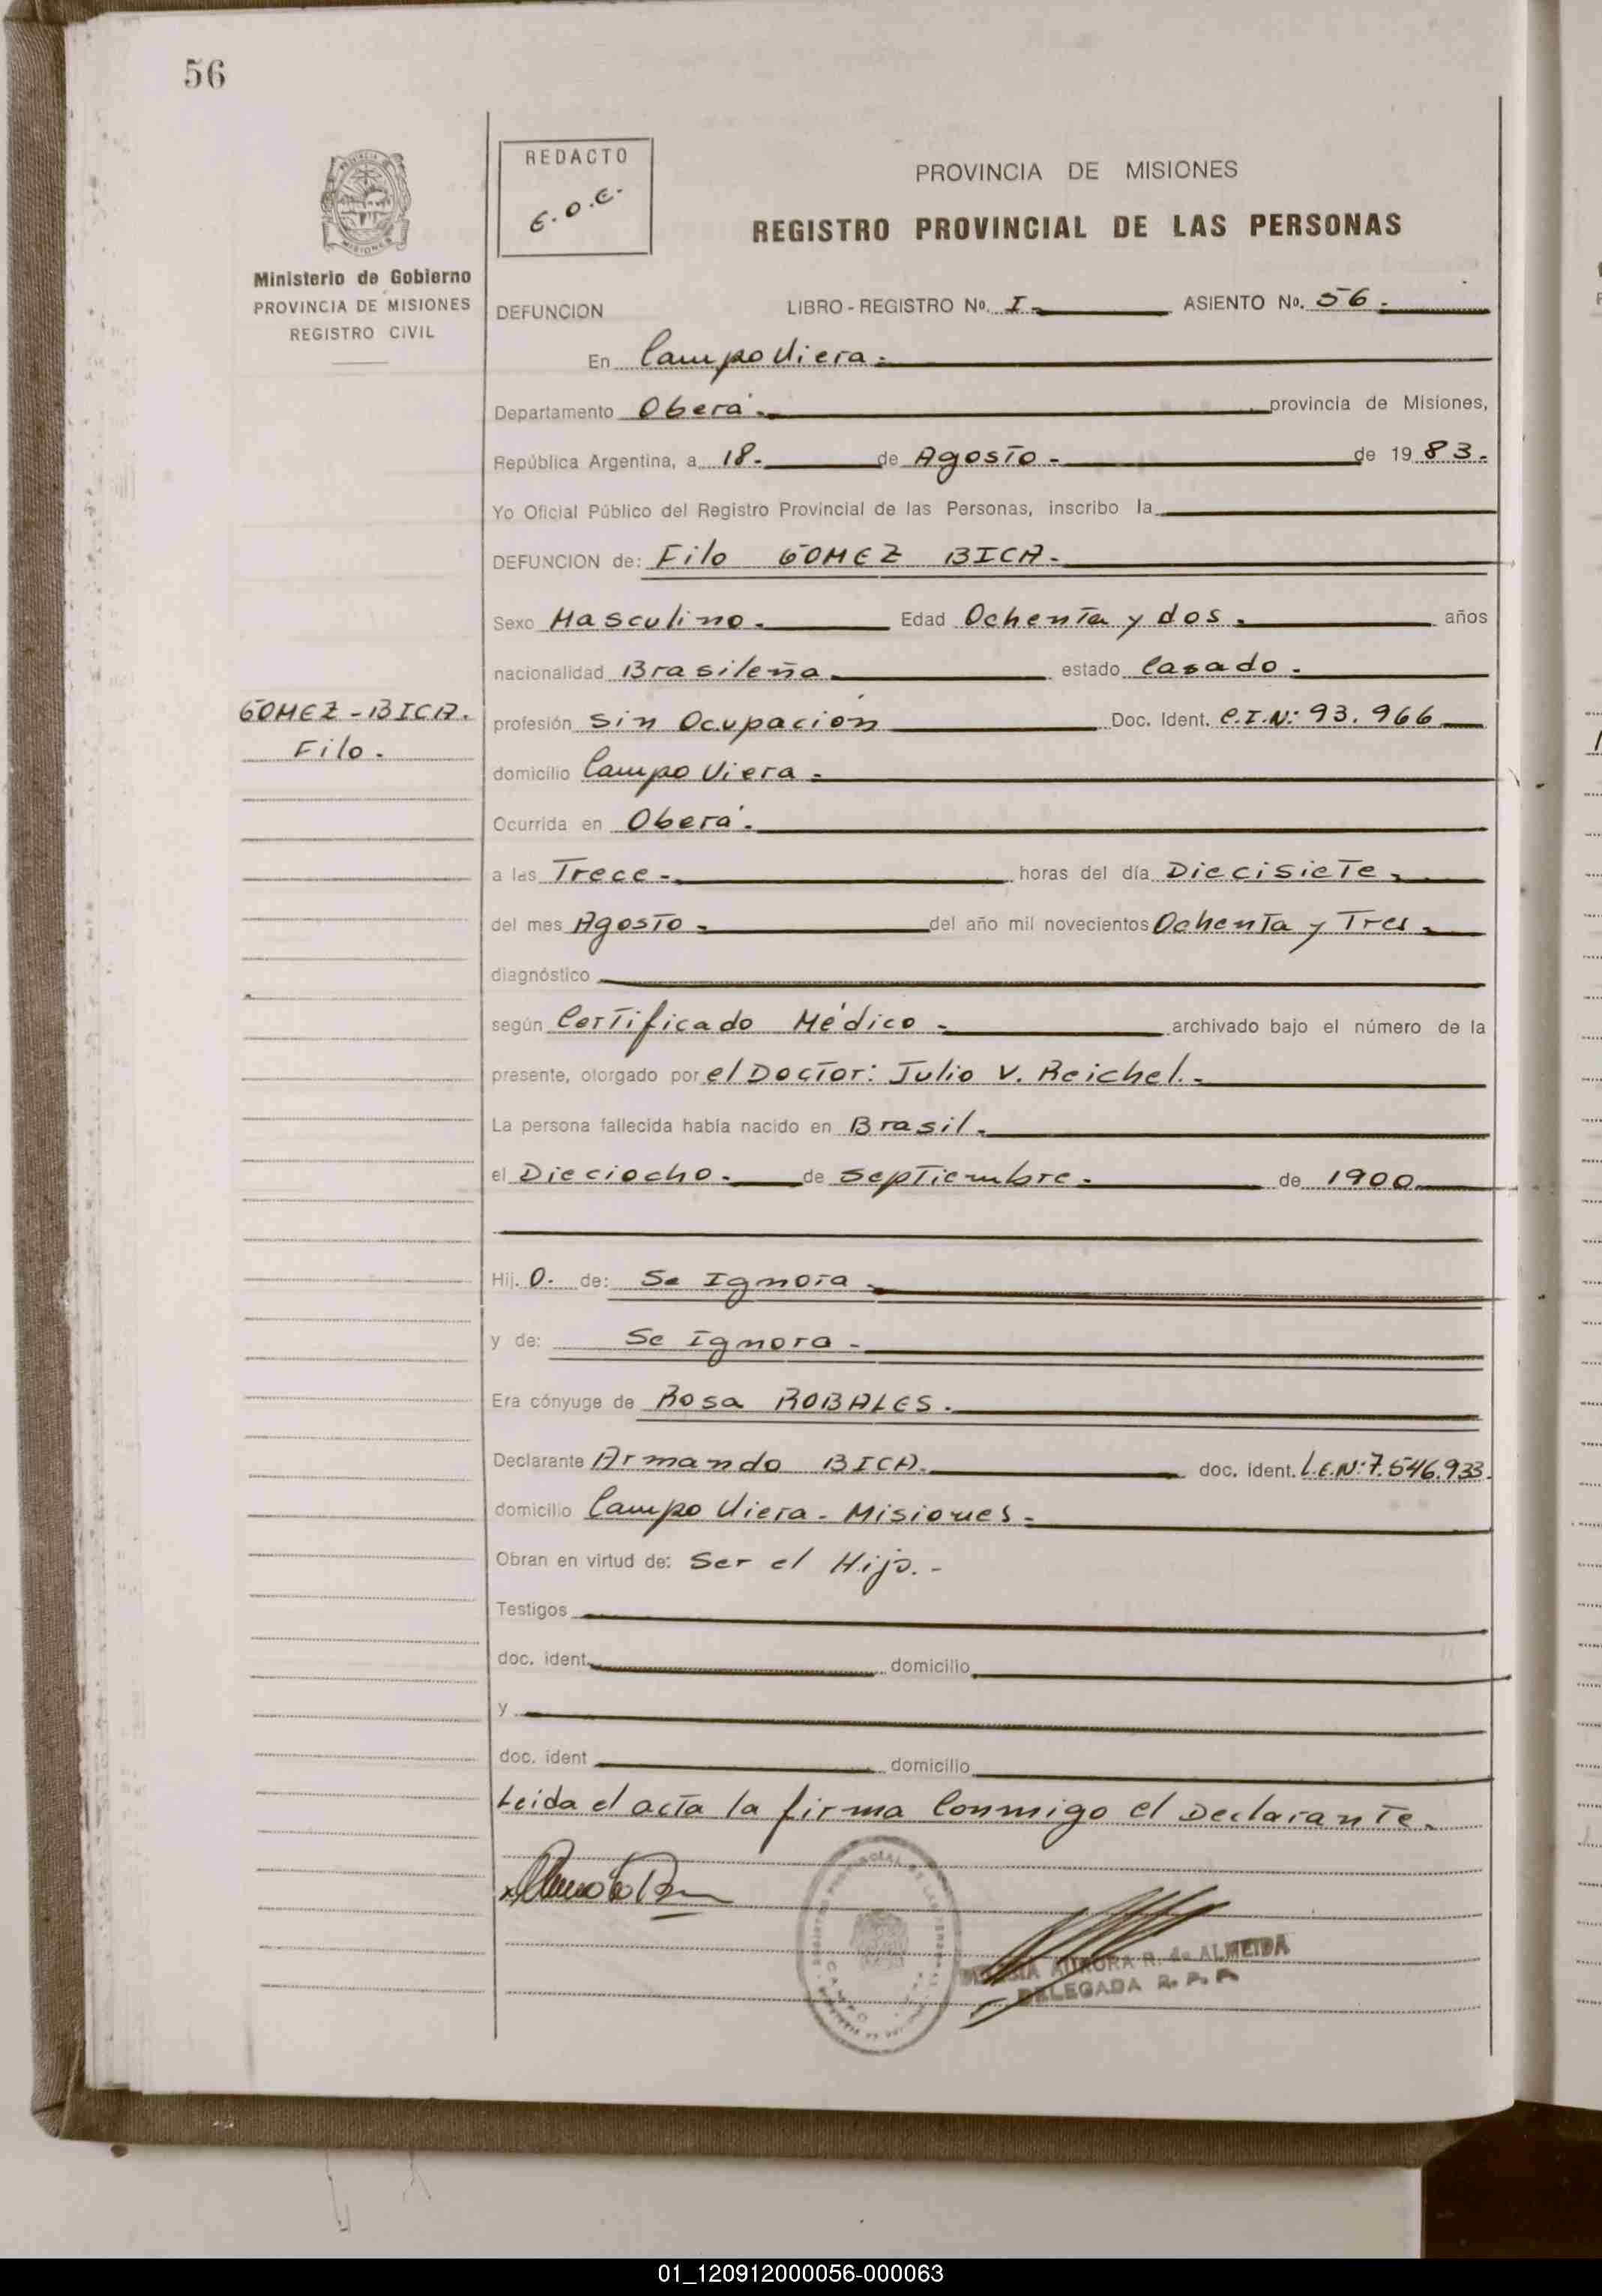 56
REDACTO
E.O.E.
PROVINCIA DE MISIONES
REGISTRO PROVINCIAL DE LAS PERSONAS
Ministerio de Gobierno
PROVINCIA DE MISIONES
REGISTRO CIVIL
DEFUNCION LIBRO - REGISTRO Nº. I - ASIENTO Nº. 56.
En Campo Viera.-
Departamento Oberá.- provincia de Misiones,
República Argentina, a 18.- de Agosto - de 19 83.-
Yo Oficial Público del Registro Provincial de las Personas, inscribo la
DEFUNCION de: Filo GOMEZ BICA.-
Sexo Masculino.- Edad Ochenta y dos.- años
nacionalidad Brasileña.- estado Casado.-
GOMEZ - BICA.
Filo.
profesión Sin Ocupación Doc. Ident. C.I.N: 93.966
domicilio Campo Viera.-
Ocurrida en Oberá.-
a las Trece.- horas del día Diecisiete.-
del mes Agosto.- del año mil novecientos Ochenta y Tres.-
diagnóstico
según Certificado Médico.- archivado bajo el número de la
presente, otorgado por el Doctor: Julio V. Reichel.-
La persona fallecida había nacido en Brasil.-
el Dieciocho.- de Septiembre.- de 1900
Hij. o. de: Se Ignora.-
y de: Se Ignora.-
Era cónyuge de Rosa ROBALES.-
Declarante Armando BICA.- doc. ident. L.E.N: 7.546.933.
domicilio Campo Viera - Misiones.-
Obran en virtud de: Ser el Hijo.-
Testigos
doc. ident. domicilio
y
doc. ident domicilio
Leida el acta la firma Conmigo el Declarante.
AURORA R. de ALMEIDA
DELEGADA R. P. P.
01_120912000056-000063